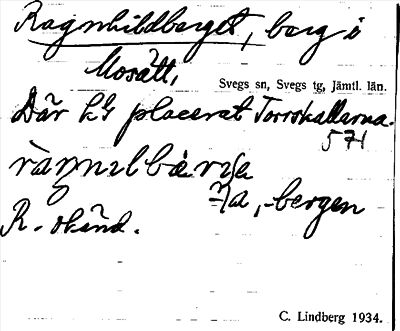 Ragnhildberget, berg i
Mosätt,
Svegs sn, Svegs tg, Jämtl. län.
Där LG placerat Torrskallarna.
571
ràŋnɩlbärjɛ
7/a, -bergen
R. okänd.
C. Lindberg 1934.